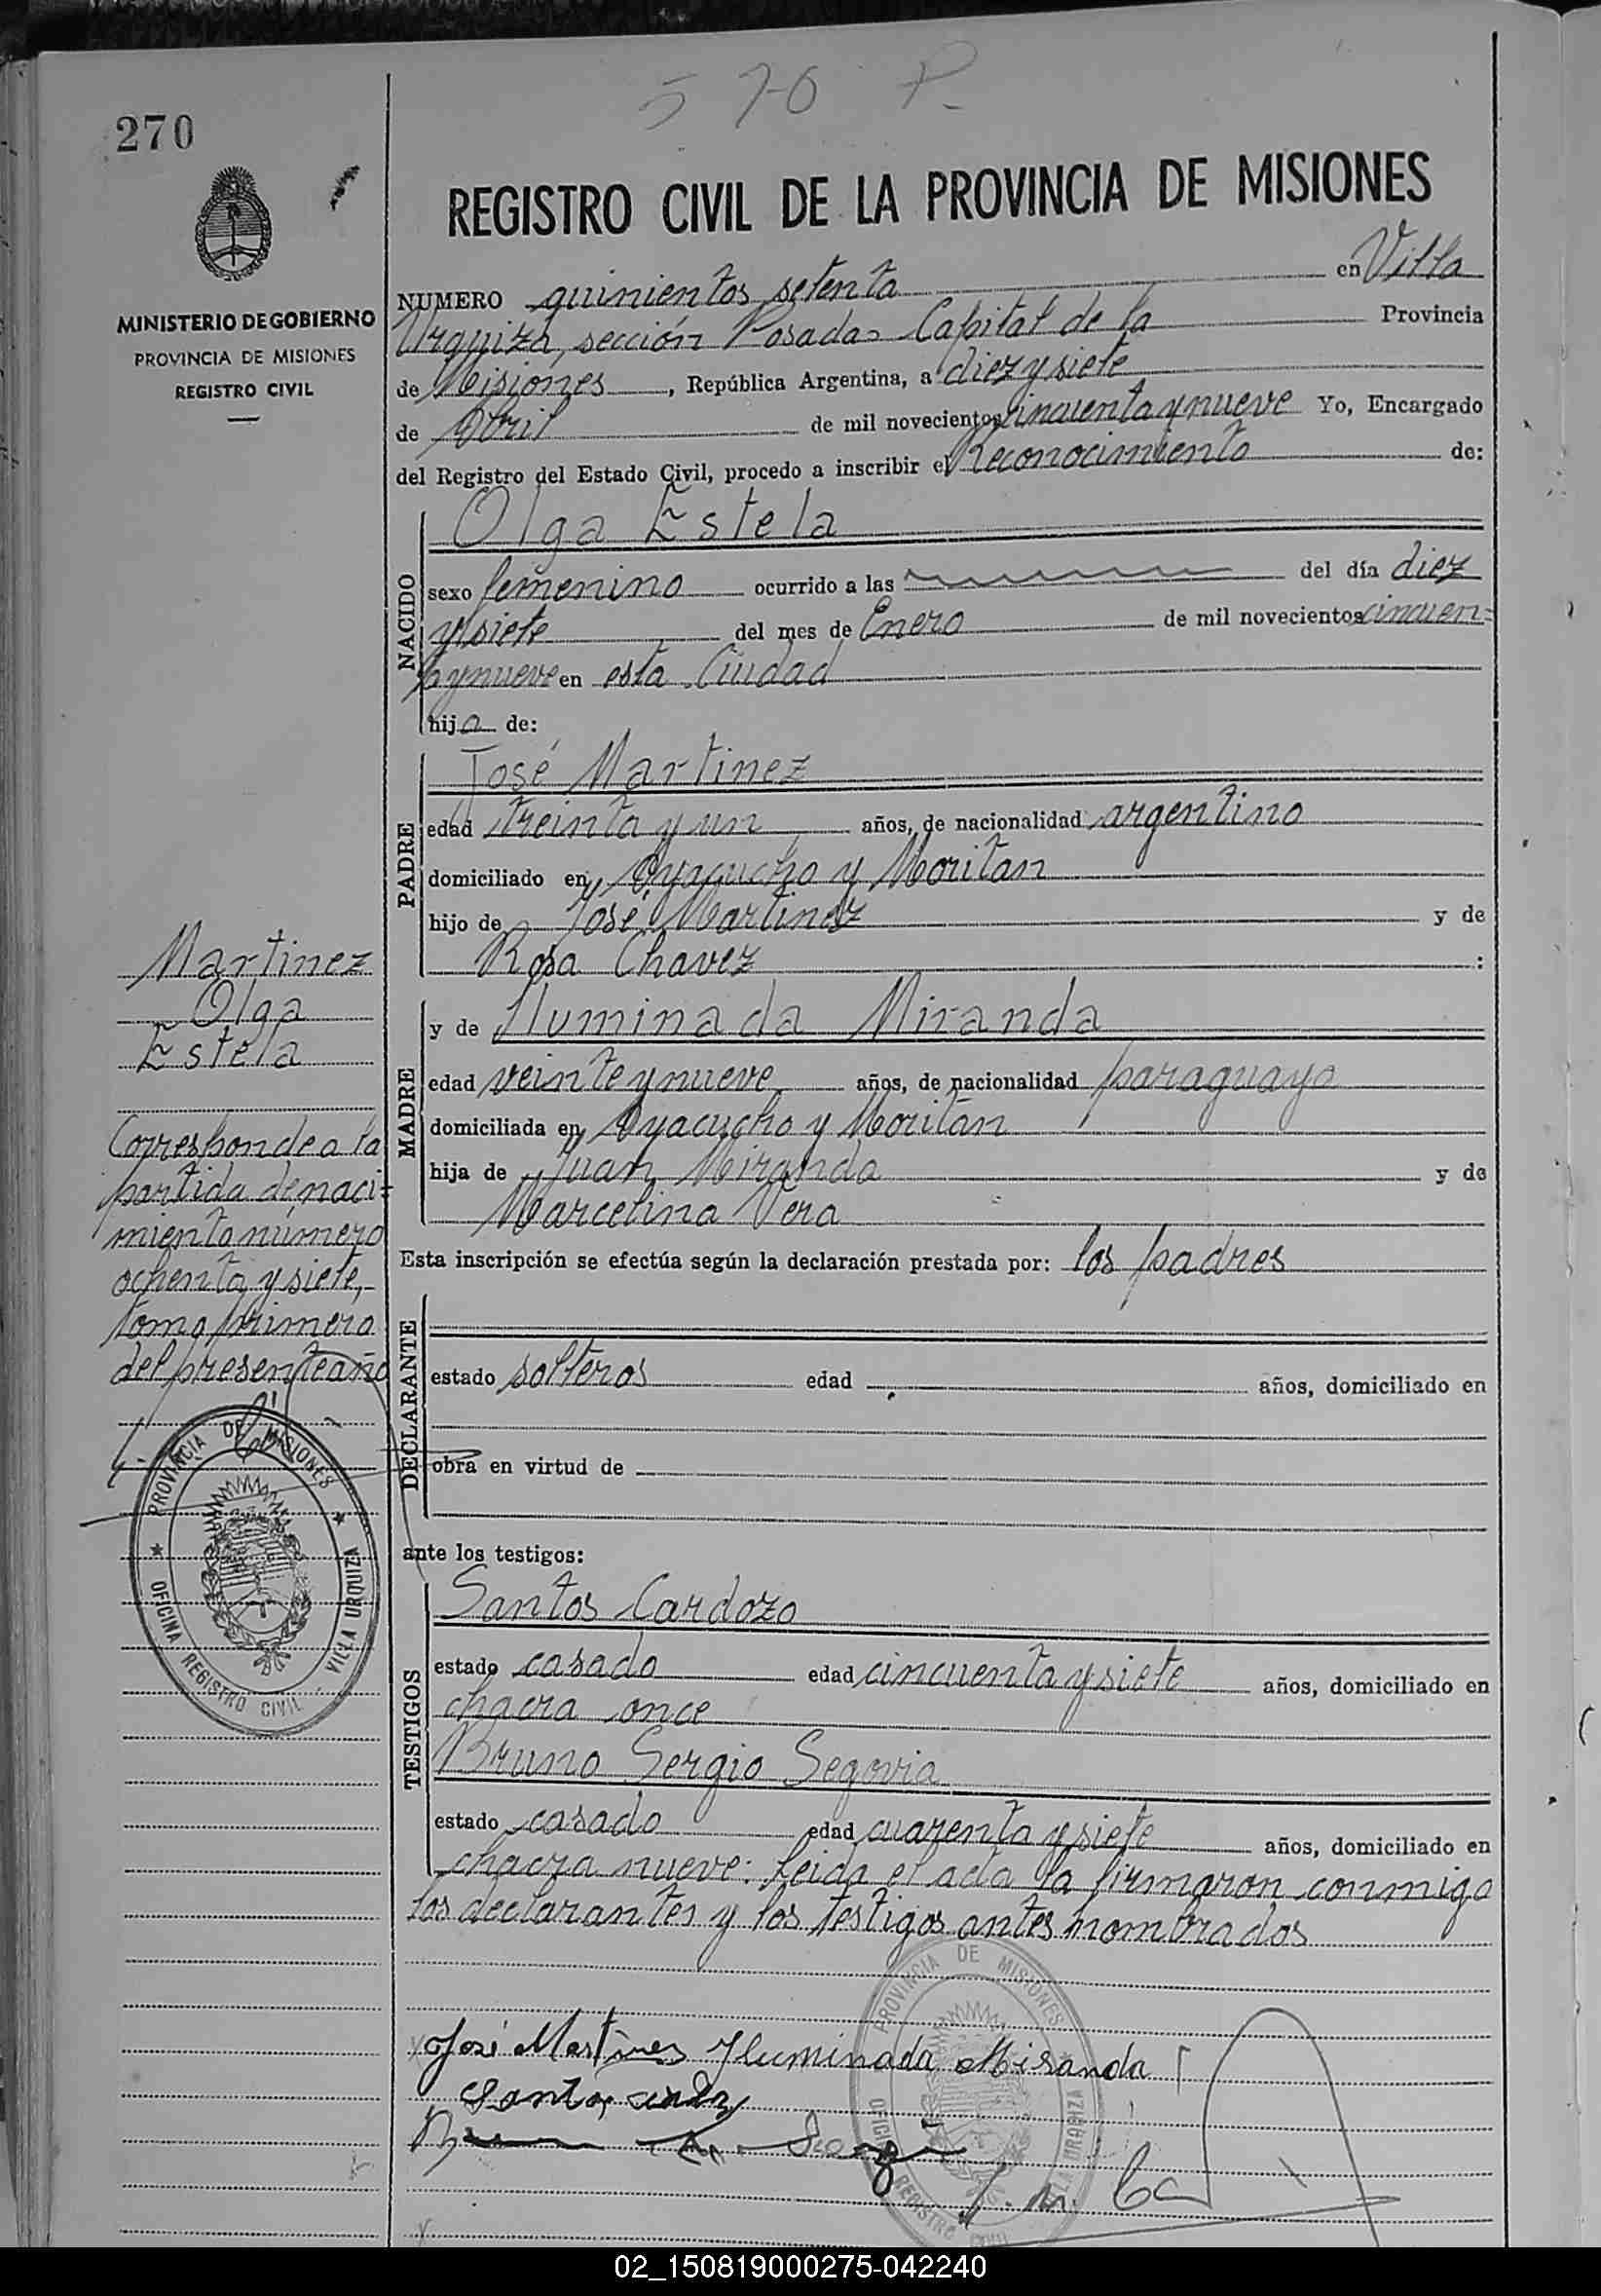 570 P.
270
REGISTRO CIVIL DE LA PROVINCIA DE MISIONES
MINISTERIO DE GOBIERNO
PROVINCIA DE MISIONES
REGISTRO CIVIL
NUMERO quinientos setenta en Villa
Urquiza, sección Posadas Capital de la Provincia
de Misiones, República Argentina, a diez y siete
de Abril de mil novecientos cincuenta y nueve Yo, Encargado
del Registro del Estado Civil, procedo a inscribir el Reconocimiento de:
NACIDO
Olga Estela
sexo femenino ocurrido a las del día diez
y siete del mes de Enero de mil novecientos cincuen=
ta y nueve en esta Ciudad
hija de:
PADRE
José Martinez
edad treinta y un años, de nacionalidad argentino
domiciliado en Ayacucho y Moritan
hijo de José Martinez y de
Rosa Chavez :
MADRE
y de Iluminada Miranda
edad veinte y nueve años, de nacionalidad paraguaya
domiciliada en Ayacucho y Moritán
hija de Juan Miranda y de
Marcelina Vera
Esta inscripción se efectúa según la declaración prestada por: los padres
DECLARANTE
estado solteros edad años, domiciliado en
obra en virtud de
ante los testigos:
TESTIGOS
Santos Cardozo
estado casado edad cincuenta y siete años, domiciliado en
chacra once
Bruno Sergio Segovia
estado casado edad cuarenta y siete años, domiciliado en
chacra nueve: Leida el acta la firmaron conmigo
los declarantes y los testigos antes nombrados
Martinez
Olga
Estela
Corresponde a la
partida de naci=
miento número
ochenta y siete,
tomo primero
del presente año
PROVINCIA DE MISIONES
OFICINA REGISTRO CIVIL - VILLA URQUIZA
José Martines Iluminada Miranda
PROVINCIA DE MISIONES
OFICINA REGISTRO CIVIL VILLA URQUIZA
02_150819000275-042240